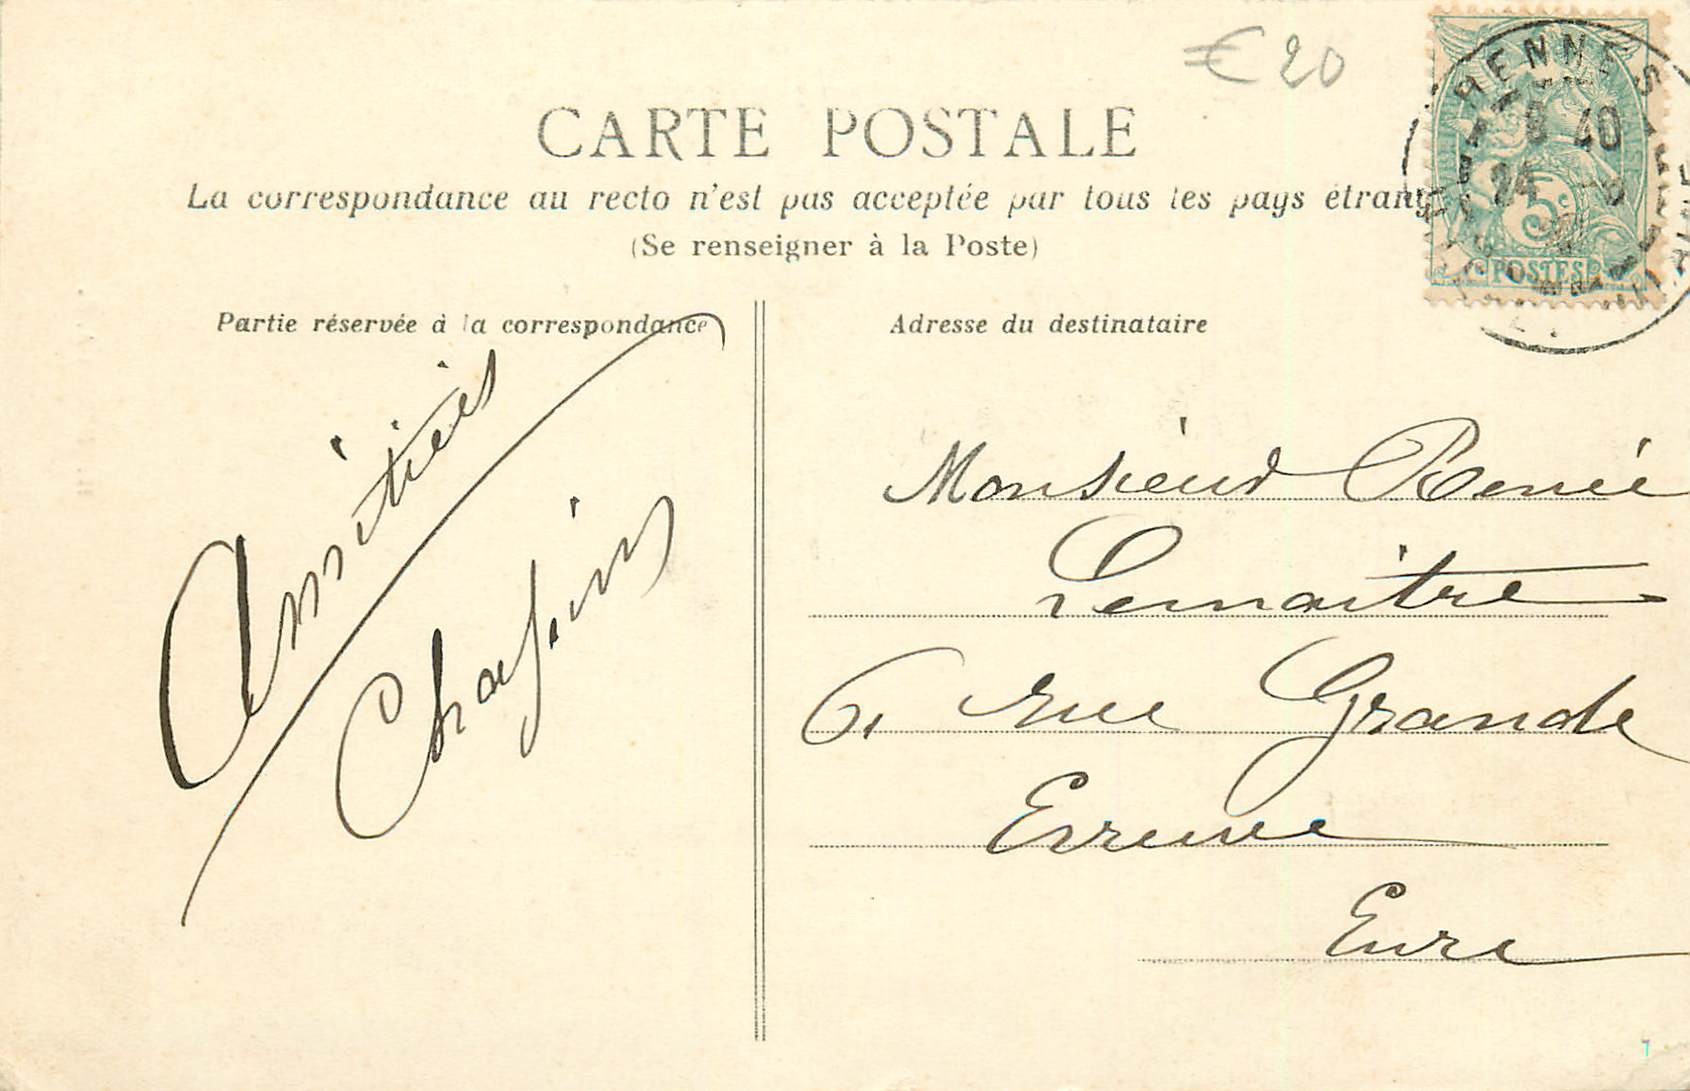 € 20
RENNES
8 40
24
5c
POSTES
CARTE POSTALE
La correspondance au recto n'est pas acceptée par tous les pays étrang
(Se renseigner à la Poste)
Partie réservée à la correspondance
Adresse du destinataire
Amitiés
Monsieur Renée
Lemaitre
6, rue Grande
Evreux
Eure